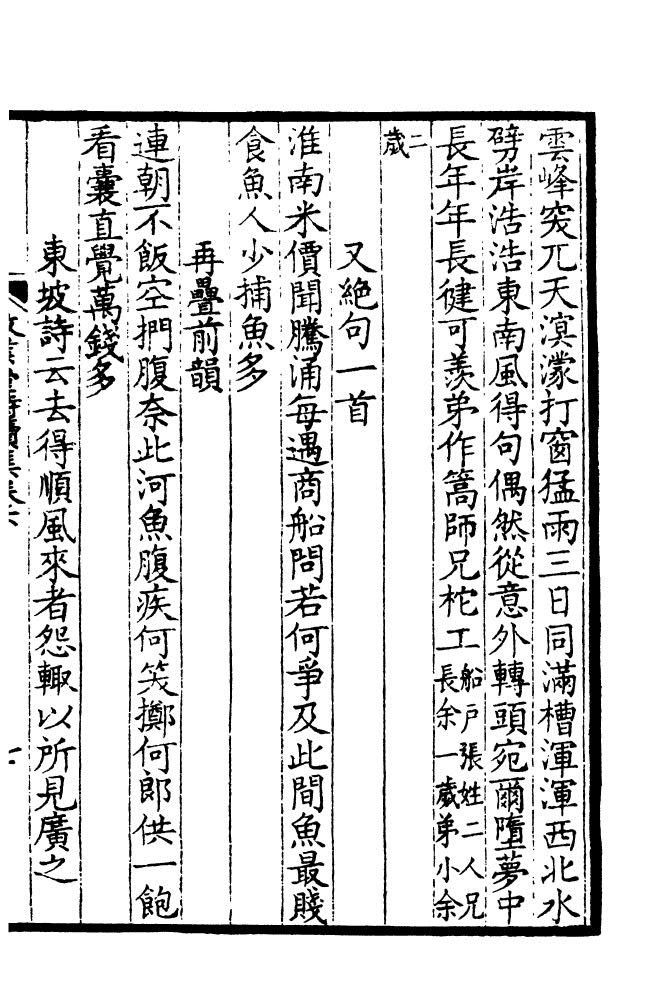 雲峰突兀天溟濛打窗猛雨三日同滿槽渾渾西北水
劈岸浩浩東南風得句偶然從意外轉頭宛爾墮夢中
長年年長健可羨弟作篙師兄柁工船戶張姓二人兄長余一歲弟小余
二歲
又絕句一首
淮南米價聞騰涌每遇商船問若何爭及此間魚最賤
食魚人少捕魚多
再疊前韻
連朝不飯空捫腹奈此河魚腹疾何笑擲何郎供一飽
看囊直覺萬錢多
東坡詩云去得順風來者怨輙以所見廣之